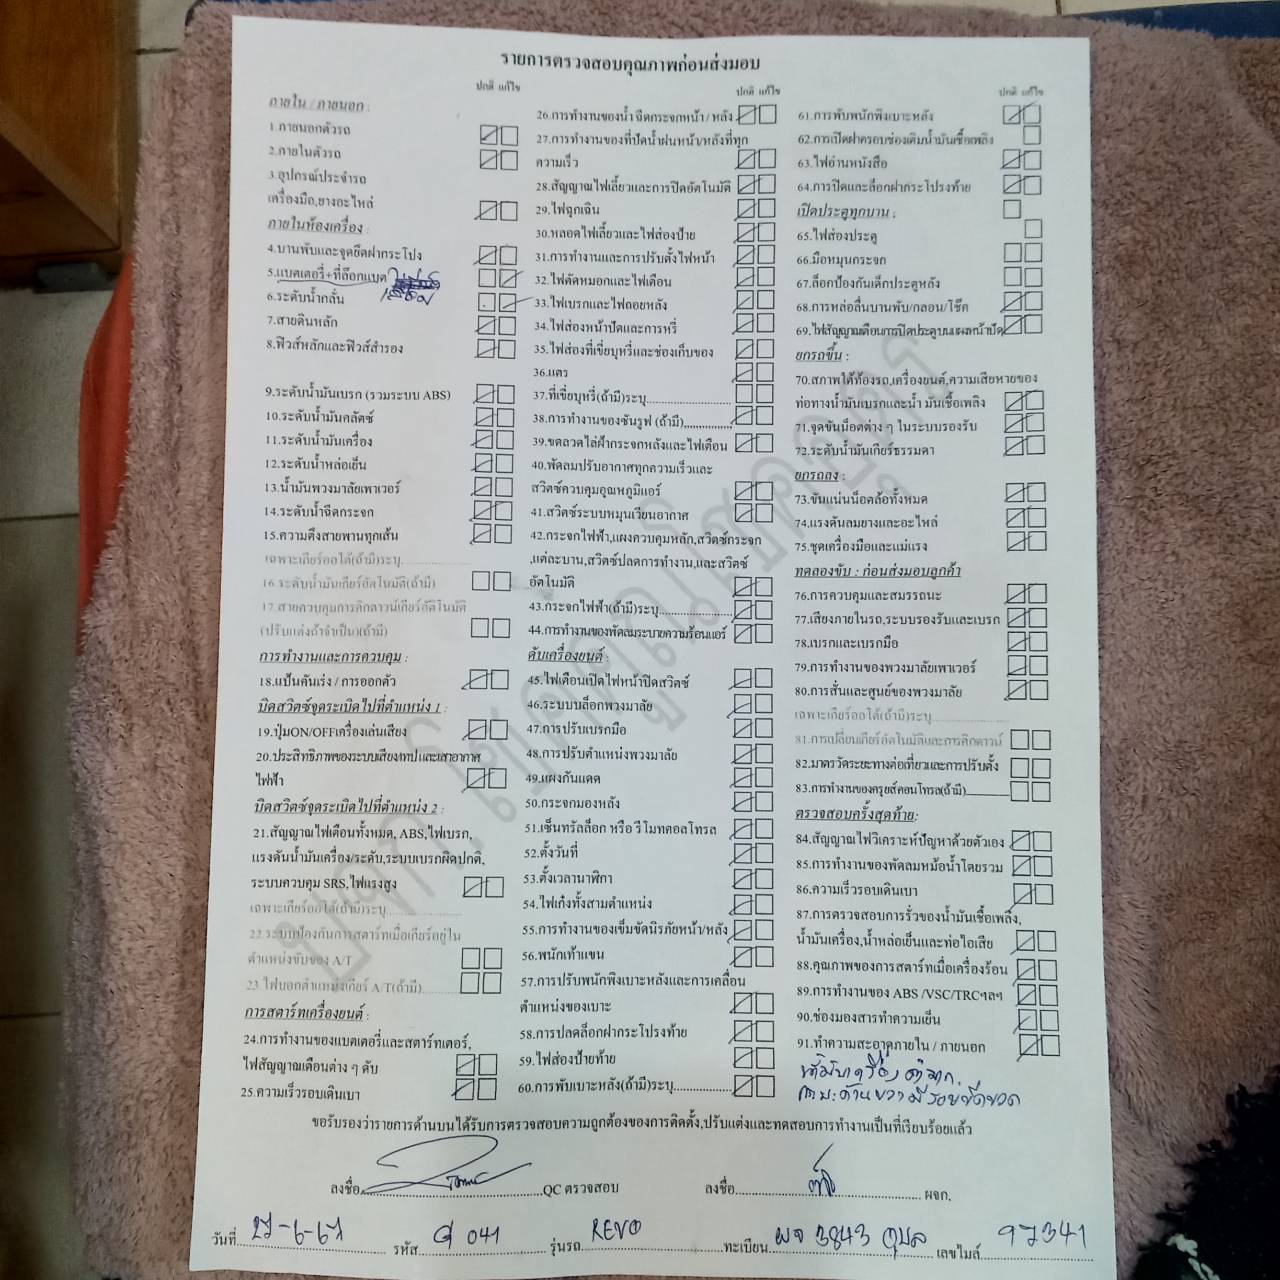 รายการตรวจสอบคุณภาพก่อนส่งมอบ
ปกติ แก้ไข
ภายใน / ภายนอก :
1.ภายนอกตัวรถ
2.ภายในตัวรถ
3.อุปกรณ์ประจำรถ
เครื่องมือ,ยางอะไหล่
ภายในห้องเครื่อง :
4.บานพับและจุดยึดฝากระโปง
5.แบตเตอรี่+ที่ล๊อกแบต
เสื่อม
6.ระดับน้ำกลั่น
7.สายดินหลัก
8.ฟิวส์หลักและฟิวส์สำรอง
9.ระดับน้ำมันเบรก (รวมระบบ ABS)
10.ระดับน้ำมันคลัตซ์
11.ระดับน้ำมันเครื่อง
12.ระดับน้ำหล่อเย็น
13.น้ำมันพวงมาลัยเพาเวอร์
14.ระดับน้ำฉีดกระจก
15.ความตึงสายพานทุกเส้น
เฉพาะเกียร์ออโต้(ถ้ามี)ระบุ
16.ระดับน้ำมันเกียร์อัตโนมัติ(ถ้ามี)
17.สายควบคุมการคิกดาวน์เกียร์อัติโนมัติ
(ปรับแต่งถ้าจำเป็น)(ถ้ามี)
การทำงานและการควบคุม :
18.แป้นคันเร่ง / การออกตัว
บิดสวิตซ์จุดระเบิดไปที่ตำแหน่ง 1 :
19.ปุ่มON/OFFเครื่องเล่นเสียง
20.ประสิทธิภาพของระบบเสียง/เทปและเสาอากาศ
ไฟฟ้า
บิดสวิตซ์จุดระเบิดไปที่ตำแหน่ง 2 :
21.สัญญาณไฟเตือนทั้งหมด, ABS,ไฟเบรก,
แรงดันน้ำมันเครื่อง/ระดับ,ระบบเบรกผิดปกติ,
ระบบควบคุม SRS,ไฟแรงสูง
เฉพาะเกียร์ออโต้(ถ้ามี)ระบุ
22.ระบบป้องกันการสตาร์ทเมื่อเกียร์อยู่ใน
ตำแหน่งขับของ A/T
23.ไฟบอกตำแหน่งเกียร์ A/T(ถ้ามี)
การสตาร์ทเครื่องยนต์ :
24.การทำงานของแบตเตอรี่และสตาร์ทเตอร์,
ไฟสัญญาณเตือนต่าง ๆ ดับ
25.ความเร็วรอบเดินเบา
ปกติ แก้ไข
26.การทำงานของน้ำ ฉีดกระจกหน้า / หลัง
27.การทำงานของที่ปัดน้ำฝนหน้า/หลังที่ทุก
ความเร็ว
28.สัญญาณไฟเลี้ยวและการปิดอัตโนมัติ
29.ไฟฉุกเฉิน
30.หลอดไฟเลี้ยวและไฟส่องป้าย
31.การทำงานและการปรับตั้งไฟหน้า
32.ไฟตัดหมอกและไฟเตือน
33.ไฟเบรกและไฟถอยหลัง
34.ไฟส่องหน้าปัดและการหรี่
35.ไฟส่องที่เขี่ยบุหรี่และช่องเก็บของ
36.แตร
37.ที่เขี่ยบุหรี่(ถ้ามี)ระบุ
38.การทำงานของซันรูฟ (ถ้ามี)
39.ขดลวดไล่ฝ้ากระจกหลังและไฟเตือน
40.พัดลมปรับอากาศทุกความเร็วและ
สวิตซ์ควบคุมอุณหภูมิแอร์
41.สวิตซ์ระบบหมุนเวียนอากาศ
42.กระจกไฟฟ้า,แผงควบคุมหลัก,สวิตซ์กระจก
,แต่ละบาน,สวิตซ์ปลดการทำงาน,และสวิตซ์
อัตโนมัติ
43.กระจกไฟฟ้า(ถ้ามี)ระบุ
44.การทำงานของพัดลมระบายความร้อนแอร์
ดับเครื่องยนต์ :
45.ไฟเตือนเปิดไฟหน้าปิดสวิตซ์
46.ระบบบล็อกพวงมาลัย
47.การปรับเบรกมือ
48.การปรับตำแหน่งพวงมาลัย
49.แผงกันแดด
50.กระจกมองหลัง
51.เซ็นทรัลล็อก หรือ รีโมทคอลโทรล
52.ตั้งวันที่
53.ตั้งเวลานาฬิกา
54.ไฟเก๋งทั้งสามตำแหน่ง
55.การทำงานของเข็มขัดนิรภัยหน้า/หลัง
56.พนักเท้าแขน
57.การปรับพนักพิงเบาะหลังและการเคลื่อน
ตำแหน่งของเบาะ
58.การปลดล็อกฝากระโปรงท้าย
59.ไฟส่องป้ายท้าย
60.การพับเบาะหลัง(ถ้ามี)ระบุ
ปกติ แก้ไข
61.การพับพนักพิงเบาะหลัง
62.การเปิดฝาครอบช่องเติมน้ำมันเชื้อเพลิง
63.ไฟอ่านหนังสือ
64.การปิดและล็อกฝากระโปรงท้าย
เปิดประตูทุกบาน :
65.ไฟส่องประตู
66.มือหมุนกระจก
67.ล็อกป้องกันเด็กประตูหลัง
68.การหล่อลื่นบานพับ/กลอน/โช๊ค
69.ไฟสัญญาณเตือนการปิดประตูบนแผงหน้าปัด
ยกรถขึ้น :
70.สภาพใต้ท้องรถ,เครื่องยนต์,ความเสียหายของ
ท่อทางน้ำมันเบรกและน้ำ มันเชื้อเพลิง
71.จุดขันน็อตต่าง ๆ ในระบบรองรับ
72.ระดับน้ำมันเกียร์ธรรมดา
ยกรถลง :
73.ขันแน่นน็อตล้อทั้งหมด
74.แรงดันลมยางและอะไหล่
75.ชุดเครื่องมือและแม่แรง
ทดลองขับ : ก่อนส่งมอบลูกค้า
76.การควบคุมและสมรรถนะ
77.เสียงภายในรถ,ระบบรองรับและเบรก
78.เบรกและเบรกมือ
79.การทำงานของพวงมาลัยเพาเวอร์
80.การสั่นและศูนย์ของพวงมาลัย
เฉพาะเกียร์ออโต้(ถ้ามี)ระบุ
81.การเปลี่ยนเกียร์อัตโนมัติและการคิกดาวน์
82.มาตรวัดระยะทางต่อเที่ยวและการปรับตั้ง
83.การทำงานของครูยส์คอนโทรล(ถ้ามี)
ตรวจสอบครั้งสุดท้าย:
84.สัญญาณไฟวิเคราะห์ปัญหาด้วยตัวเอง
85.การทำงานของพัดลมหม้อน้ำโดยรวม
86.ความเร็วรอบเดินเบา
87.การตรวจสอบการรั่วของน้ำมันเชื้อเพลิง,
น้ำมันเครื่อง,น้ำหล่อเย็นและท่อไอเสีย
88.คุณภาพของการสตาร์ทเมื่อเครื่องร้อน
89.การทำงานของ ABS /VSC/TRCฯลฯ
90.ช่องมองสารทำความเย็น
91.ทำความสะอาดภายใน / ภายนอก
ขอรับรองว่ารายการด้านบนได้รับการตรวจสอบความถูกต้องของการติดตั้ง,ปรับแต่งและทดสอบการทำงานเป็นที่เรียบร้อยแล้ว
ลงชื่อ QC ตรวจสอบ ลงชื่อ ผจก.
วันที่ 27-6-67 รหัส 041 รุ่นรถ REVO ทะเบียน ผจ 3843 อุบล เลขไมล์ 97341